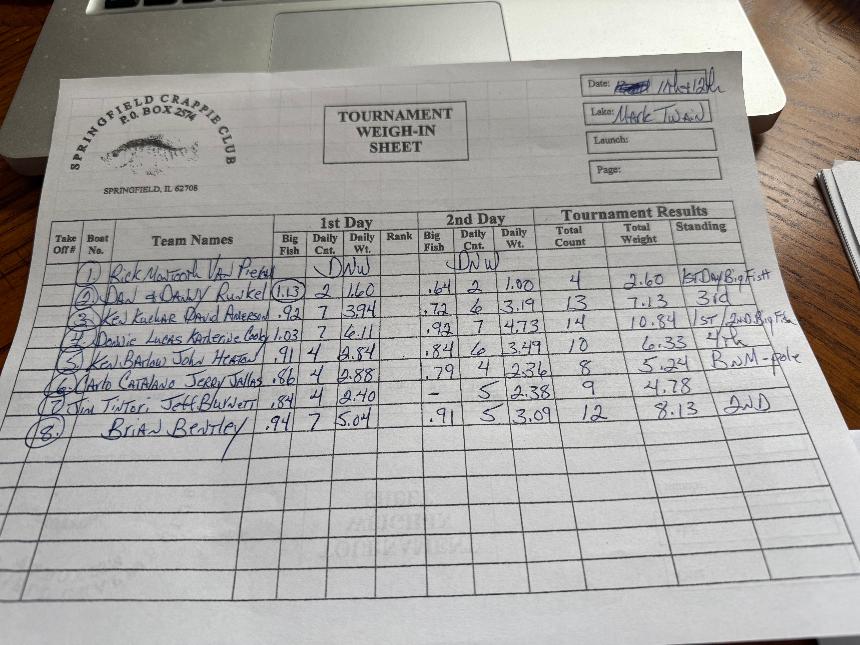 SPRINGFIELD CRAPPIE CLUB
P.O. BOX 2574
SPRINGFIELD, IL 62708
TOURNAMENT
WEIGH-IN
SHEET
Date: 11th & 12th
Lake: Mark Twain
Launch:
Page:
1st Day 2nd Day Tournament Results
Take Off# Boat No. Team Names Big Fish Daily Cnt. Daily Wt. Rank Big Fish Daily Cnt. Daily Wt. Total Count Total Weight Standing
1 Rick Montooth Van DNW DNW
2 Dan & Danny Runkel 1.13 2 1.60 .64 2 1.00 4 2.60 1st Day Big Fish
3 Ken Kuchar David Anderson .92 7 3.94 .72 6 3.19 13 7.13 3rd
Donnie Lucas Katherine Cooley 1.03 7 6.11 .92 7 4.73 14 10.84 1st / 2nd Big Fish
5 Ken Barlow John Heaton .91 4 2.84 .84 6 3.49 10 6.33 4th
6 Carlo Catalano Jerry Jallas .86 4 2.88 .79 4 2.36 8 5.24 BnM-pole
7 Jim Tintori Jeff Burnett .84 4 2.40 - 5 2.38 9 4.78
8. Brian Bentley .94 7 5.04 .91 5 3.09 12 8.13 2ND